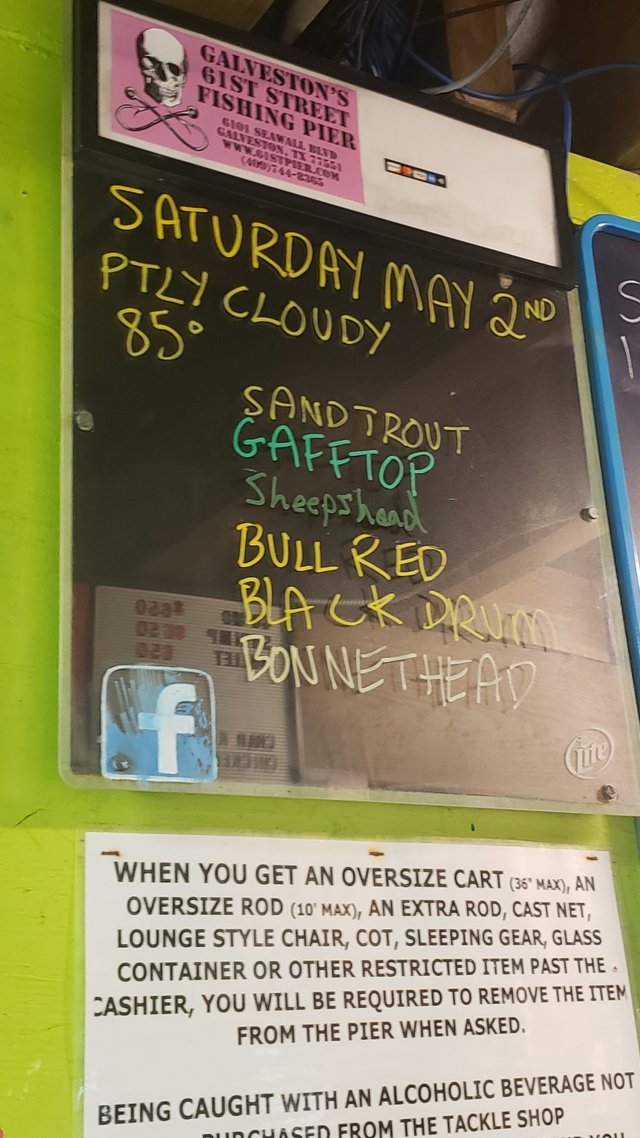 GALVESTON'S
61ST STREET
FISHING PIER
6101 SEAWALL BLVD
GALVESTON, TX 77551
WWW.61STPIER.COM
(409)744-8365
SATURDAY MAY 2ND
PTLY CLOUDY
85°
SAND TROUT
GAFFTOP
Sheepshead
BULL RED
BLACK DRUM
BONNETHEAD
f
Lite
WHEN YOU GET AN OVERSIZE CART (36" MAX), AN
OVERSIZE ROD (10' MAX), AN EXTRA ROD, CAST NET,
LOUNGE STYLE CHAIR, COT, SLEEPING GEAR, GLASS
CONTAINER OR OTHER RESTRICTED ITEM PAST THE
CASHIER, YOU WILL BE REQUIRED TO REMOVE THE ITEM
FROM THE PIER WHEN ASKED.
BEING CAUGHT WITH AN ALCOHOLIC BEVERAGE NOT
PURCHASED FROM THE TACKLE SHOP